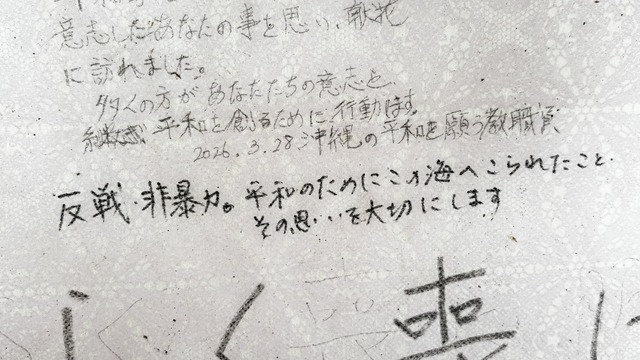 意志したあなたの事を思い、献花
に訪れました。
多くの方があなたたちの意志を
継続し 平和を創るために行動します
2026.3.28 沖縄の平和を願う教職員
反戦・非暴力。平和のためにこの海へこられたこと、
その思いを大切にします
しく 喪